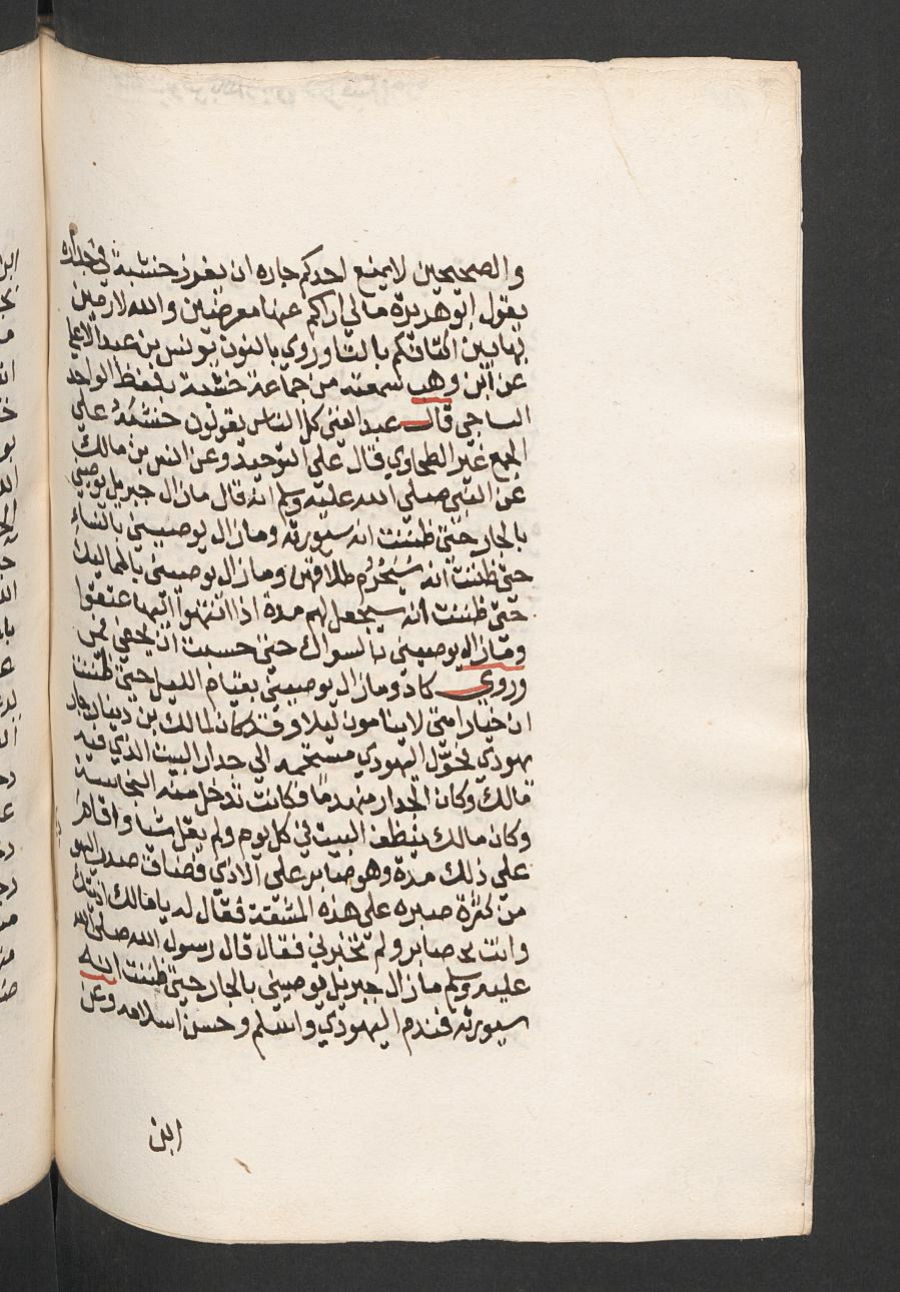 والصحيحين لا يمنع احدكم جاره ان يغرز خشبة في جداره
يقول ابو هريرة مالي اراكم عنها معرضين والله لارمين
بها بين اكتافكم بالتا وروي بالنون يونس بن عبد الاعلى
عن ابن وهب سمعته من جماعة خشبة بلفظ الواحد
الساجي قال عبد الغني كل الناس يقولون خشبه على
الجمع غير الطحاوي قال على التوحيد وعن انس بن مالك
عن النبي صلى الله عليه وسلم انه قال مازال جبريل يوصيني
بالجار حتى ظننت انه سيورثه ومازال يوصيني بالنساء
حتى ظننت انه سيحرم طلاقهن ومازال يوصيني بالمماليك
حتى ظننت انه سيجعل لهم مدة اذا انتهوا اليها عتقوا
ومازال يوصيني بالسواك حتى حسبت ان يحفي فمي
وروي كاد ومازال يوصيني بقيام الليل حتى ظننت
ان خيار امتي لا ينامون ليلا وقد كان لمالك بن دينار جار
يهودي فحول اليهودي مستحمه الى جدار البيت الذي فيه
مالك وكان الجدار منهدما فكانت تدخل منه النجاسة
وكان مالك ينظف البيت في كل يوم ولم يقل شيا واقام
على ذلك مدة وهو صابر على الاذي فضاق صدر اليهو
من كثرة صبره على هذه المشقة فقال له يا مالك اذيتك
وانت صابر ولم تخبرني فقال قال رسول الله صلى الله
عليه وسلم مازال جبريل يوصيني بالجار حتى ظننت انه
سيورثه فندم اليهودي واسلم وحسن اسلامه وعن
ابن